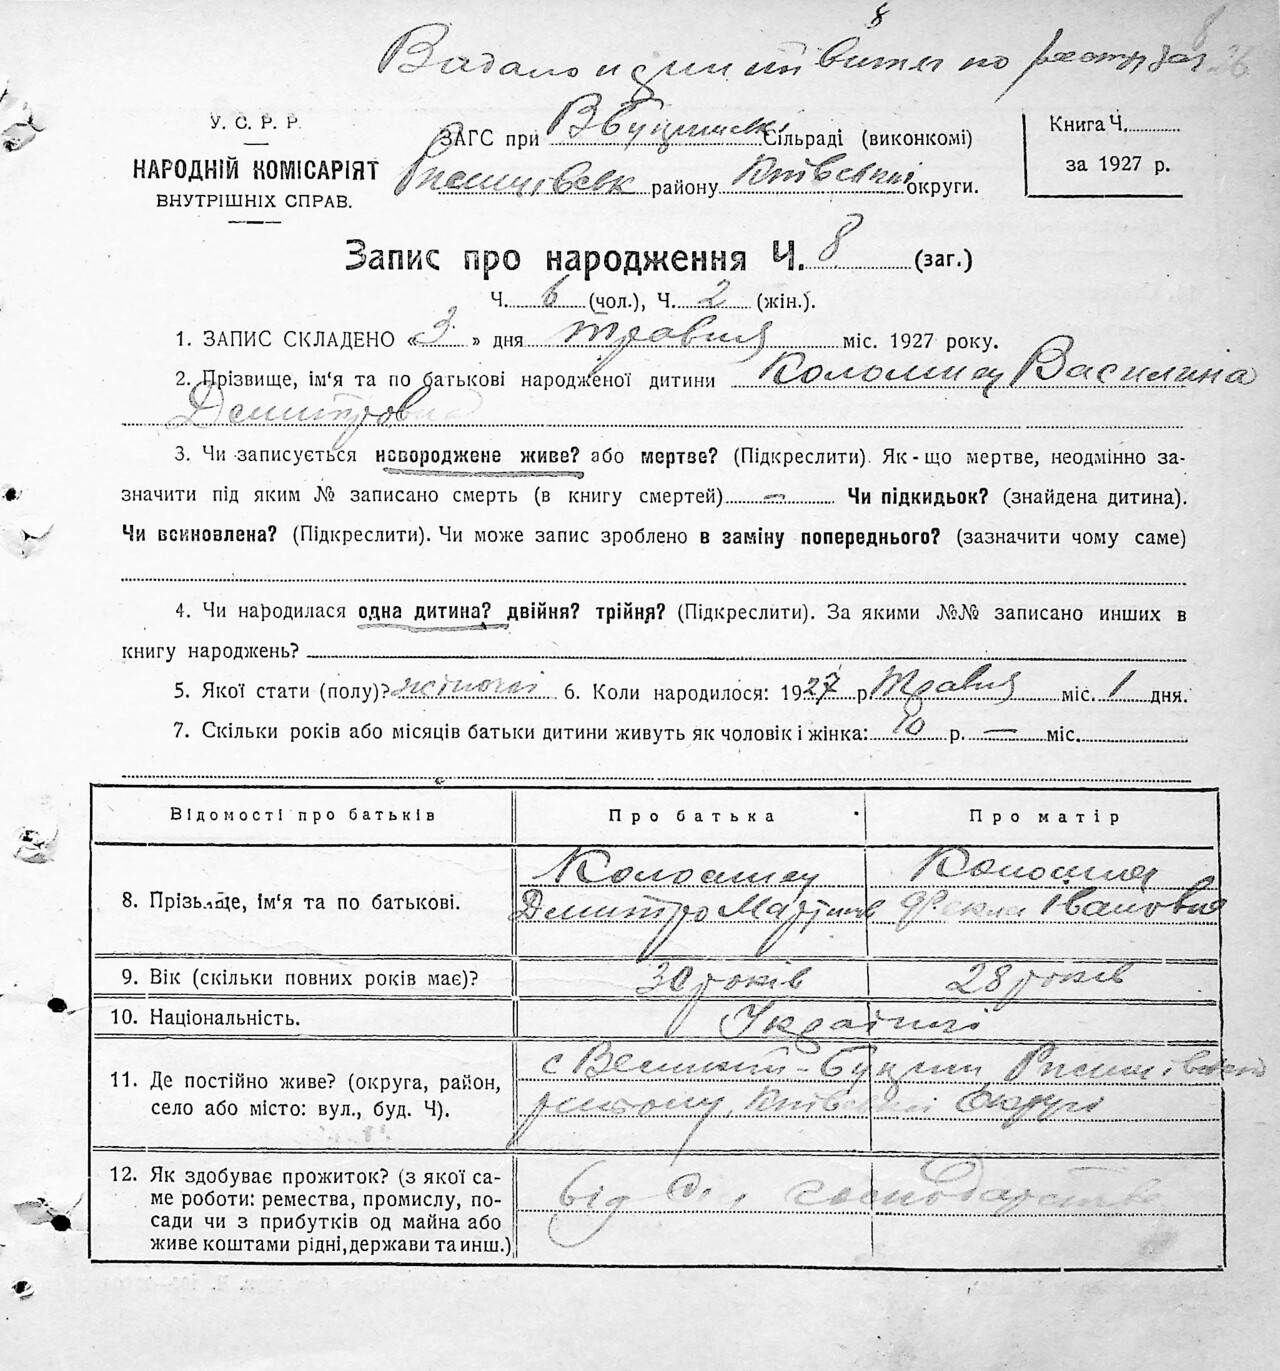 8
8
Видано
У. С. Р. Р.
НАРОДНІЙ КОМІСАРІЯТ
ВНУТРІШНІХ СПРАВ.
ЗАГС при В Букринськ Сільраді (виконкомі)
Ржищівськ району Київської округи.
Книга Ч.
за 1927 р.
Запис про народження Ч. 8 (заг.)
Ч. 6 (чол.), Ч. 2 (жін.).
1. ЗАПИС СКЛАДЕНО «3» дня травня міс. 1927 року.
2. Прізвище, ім'я та по батькові народженої дитини Коломиец Василина
Дмитровна
3. Чи записується новороджене живе? або мертве? (Підкреслити). Як-що мертве, неодмінно за-
значити під яким № записано смерть (в книгу смертей) — Чи підкидьок? (знайдена дитина).
Чи всиновлена? (Підкреслити). Чи може запис зроблено в заміну попереднього? (зазначити чому саме)
4. Чи народилася одна дитина? двійня? трійня? (Підкреслити). За якими №№ записано инших в
книгу народжень?
5. Якої стати (полу)? жіночої 6. Коли народилося: 1927 р. Травня міс. 1 дня.
7. Скільки років або місяців батьки дитини живуть як чоловік і жінка: 10 р. — міс.
Відомості про батьків
Про батька
Про матір
8. Прізвище, ім'я та по батькові.
Коломиец
Дмитро Мартинов
Коломиец
Фекла Івановна
9. Вік (скільки повних років має)?
30 років
28 років
10. Національність.
Українці
11. Де постійно живе? (округа, район,
село або місто: вул., буд. Ч).
с Великий-Букрин Ржищівського
району, Київської Округи
12. Як здобуває прожиток? (з якої са-
ме роботи: ремества, промислу, по-
сади чи з прибутків од майна або
живе коштами рідні, держави та инш.)
від с. господарства